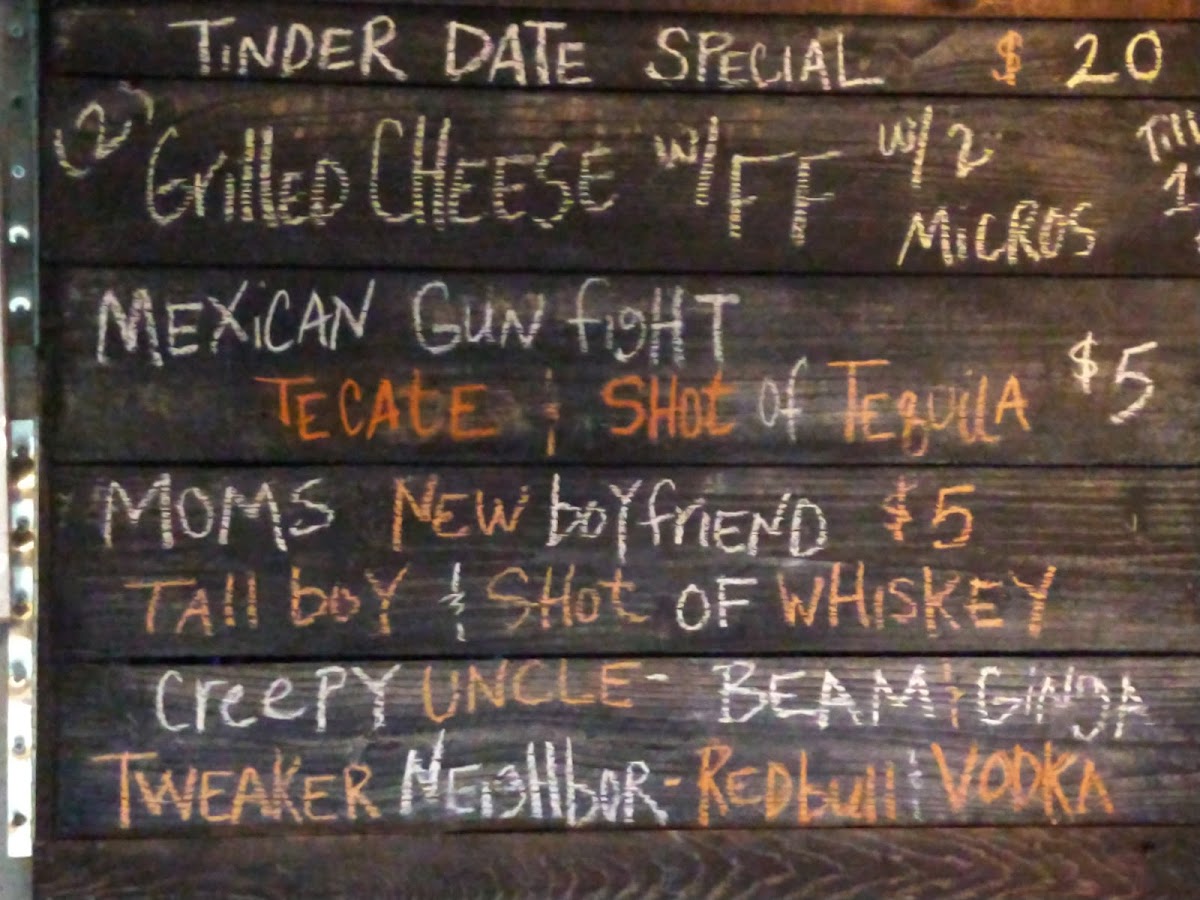 TiNDER DATE SPECIAL $ 20
(2) Grilled CHEESE w/ FF w/ 2 MiCROS
MEXiCAN GUN figHT
TECATE & SHOt of TEquilA $5
MOMS NEW boYfriEND $5
TAll boY & SHOt OF WHiSKEY
CreePY UNCLE - BEAM & GiNGA
TWEAKER NEigHboR - REDbull & VODKA